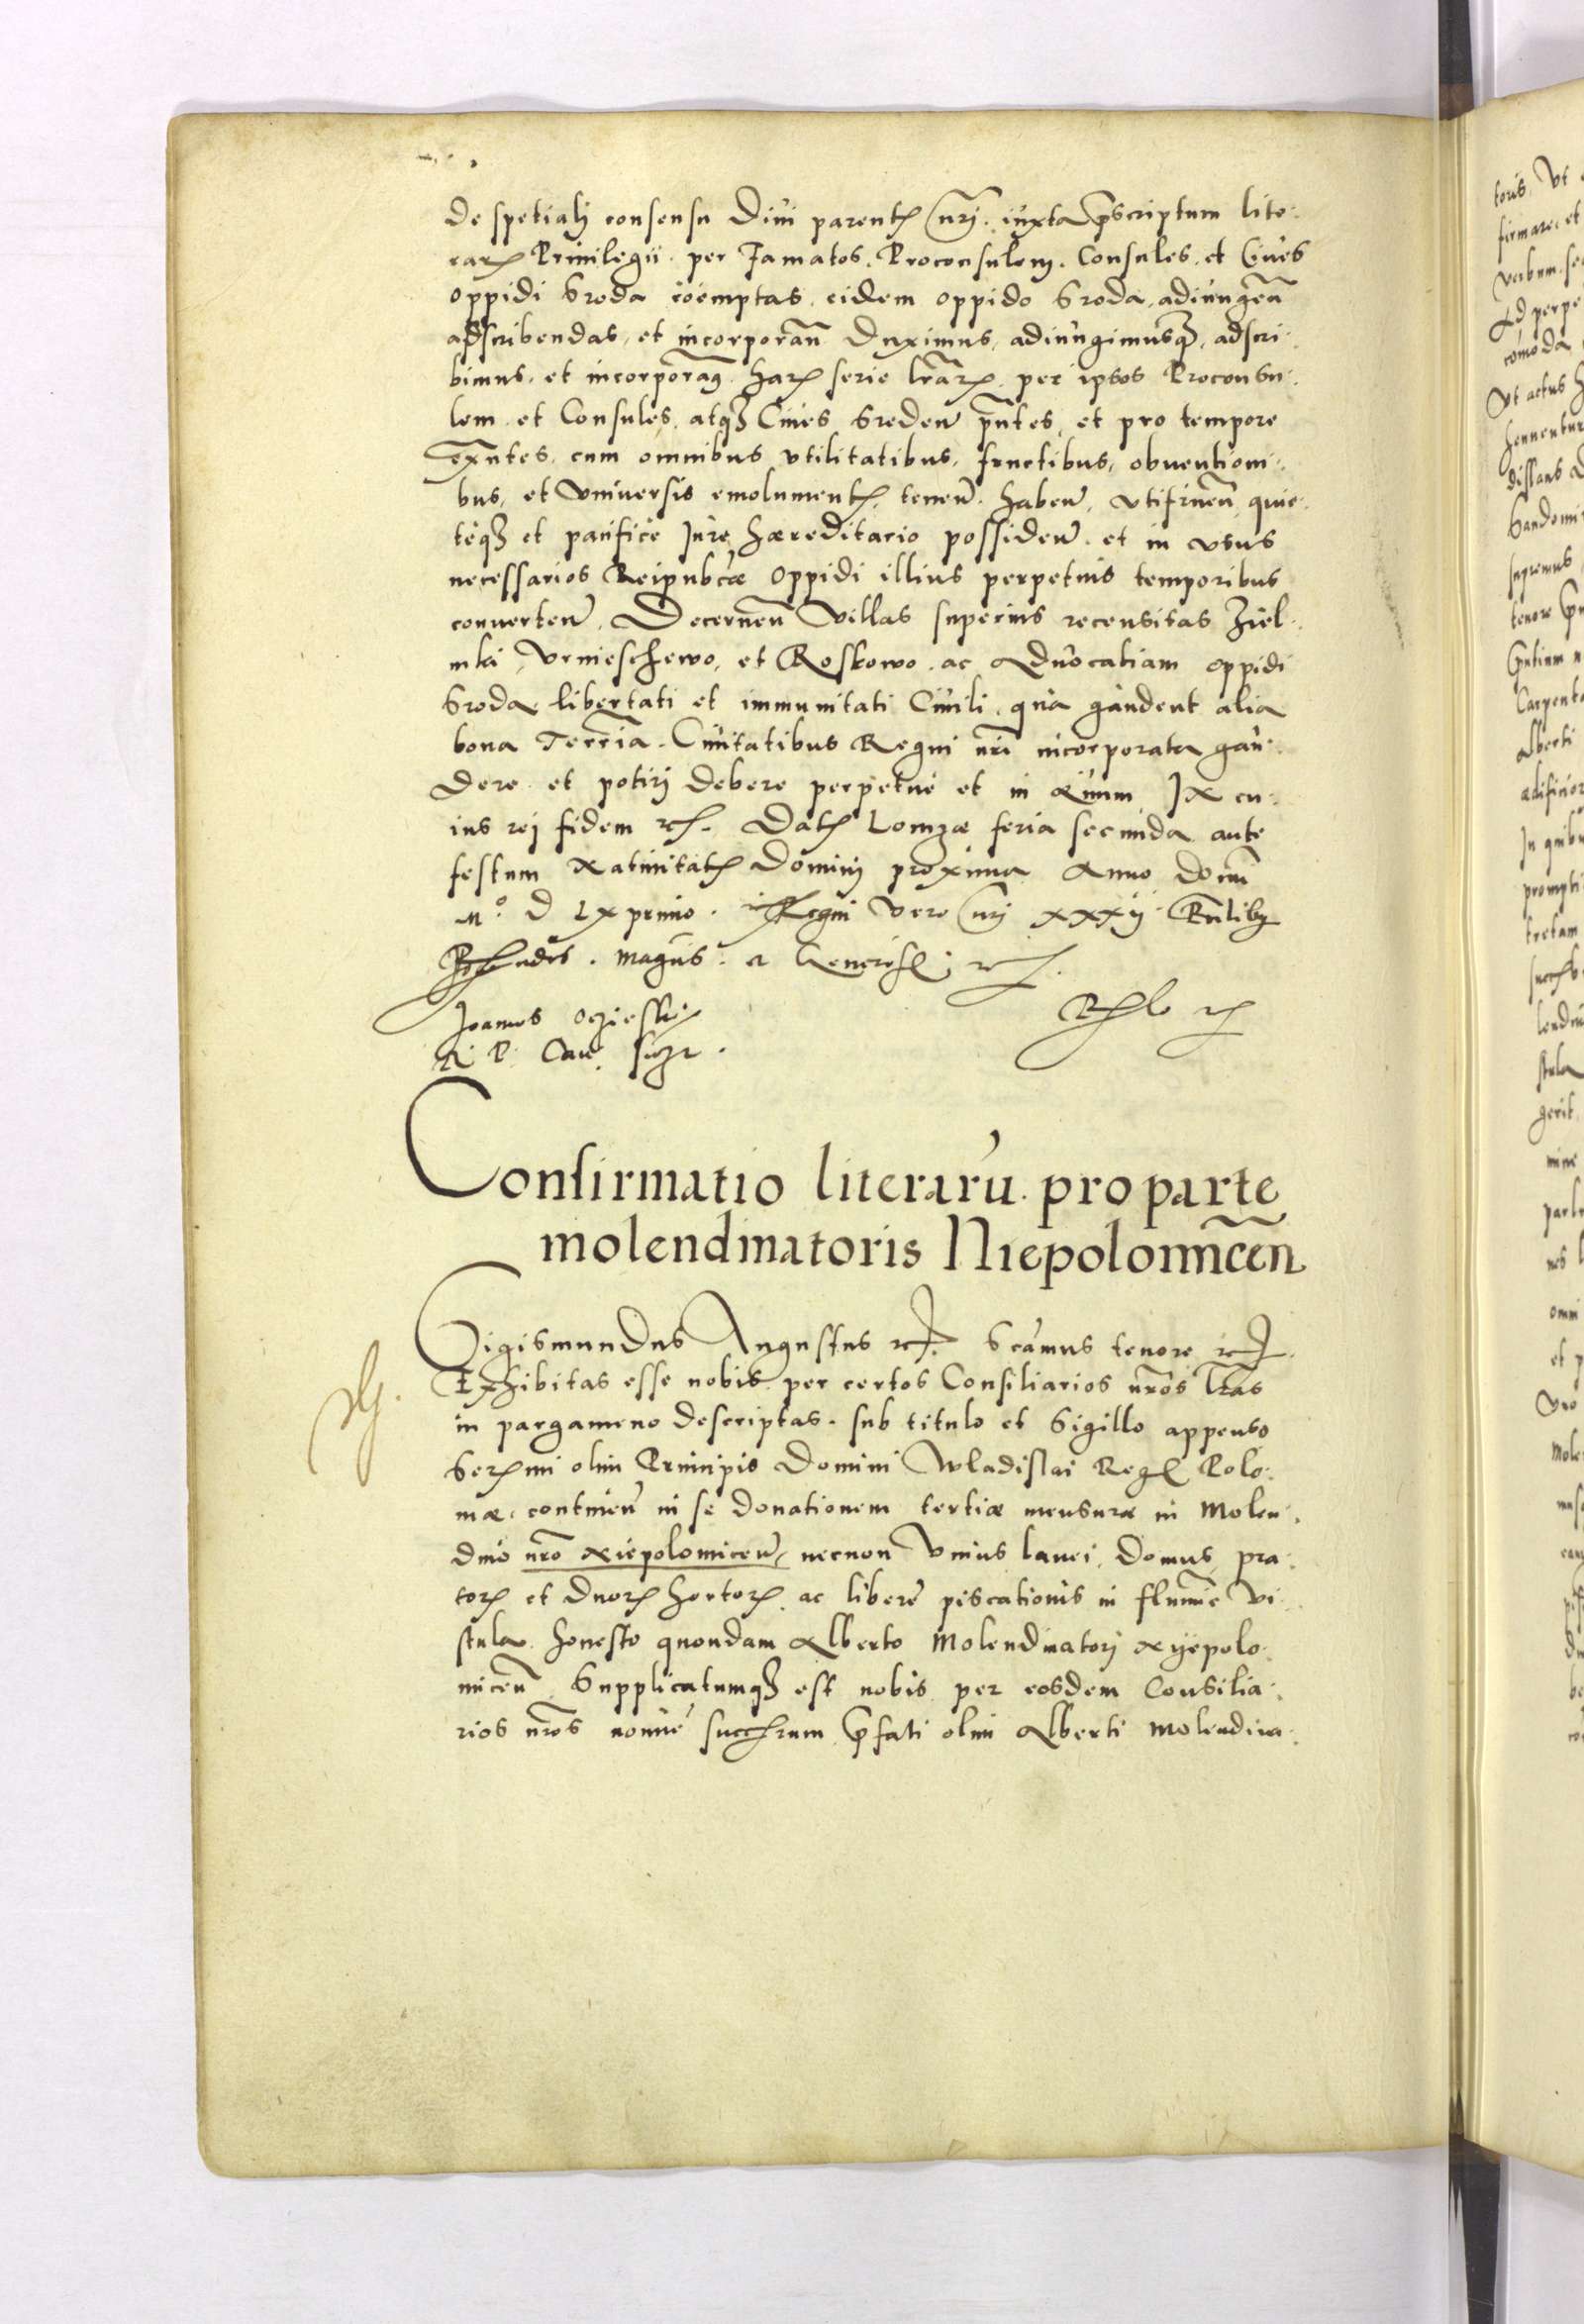 de spetialj consensu Divi parentꝭ nr̃j iuxta p̃scriptum lite-
rarꝝ Privilegii per Famatos Proconsulem Consules et Cives
oppidi Sroda coemptas, eidem oppido Sroda adiungeñ
adscribendas, et incorporañ Duximus, adiungimusqꝫ, adscri-
bimus, et incorporamꝰ harꝝ serie lr̃arꝝ per ipsos Proconsu-
lem et Consules, atqꝫ Cives Sredeñ pñtes, et pro tempore
exñtes, cum omnibus utilitatibus, fructibus, obventioni-
bus, et Universis emolumentꝭ, teneñ habeñ, utifrueñ, quie-
teqꝫ et pacifice Jure hæreditario possideñ et in usus
necessarios Reipubcæ oppidi illius perpetuis temporibus
converteñ. Decerneñ Villas superius recensitas Ziel-
niki, Urnieschewo, et Roskowo, ac Advocatiam oppidi
Sroda libertati et immunitati Civili, qua gaudent alia
bona Terr̃ia Civitatibus Regni nr̃i incorporata gau-
dere et potirj debere perpetue et in ævum. In cu-
ius rej fidem ꝛc. Datꝭ Lomzæ feria secunda ante
festum Nativitatꝭ Dominj proxima Anno Domĩ
Mº D Lxprimo. Regni vero nr̃j xxxij
Joannes Ocziesskj
R P Canc. sszt.
Confirmatio literarũ pro parte
molendinatoris Niepolomiceñ
Sigismundus Augustus ꝛc. Scamus tenore ꝛc.
Exhibitas esse nobis per certos Consiliarios nr̃os lr̃as
in pargameno descriptas, sub titulo et Sigillo appenso
Serꝫmi olim Principis Domini Wladislai Regꝭ Polo-
niæ, contineñ in se donationem tertiæ mensuræ in Molen-
dino nr̃o Niepolomiceñ, necnon Unius lanei, Domus, pra-
torꝝ et Duorꝝ hortorꝝ, ac libere piscationis in flumine Vi-
stula honesto quondam Alberto Molendinatorj Nyepolo-
miceñ. Supplicatumqꝫ est nobis per eosdem Consilia-
rios nr̃os nomine succrum p̃fati olim Alberti Molendina-